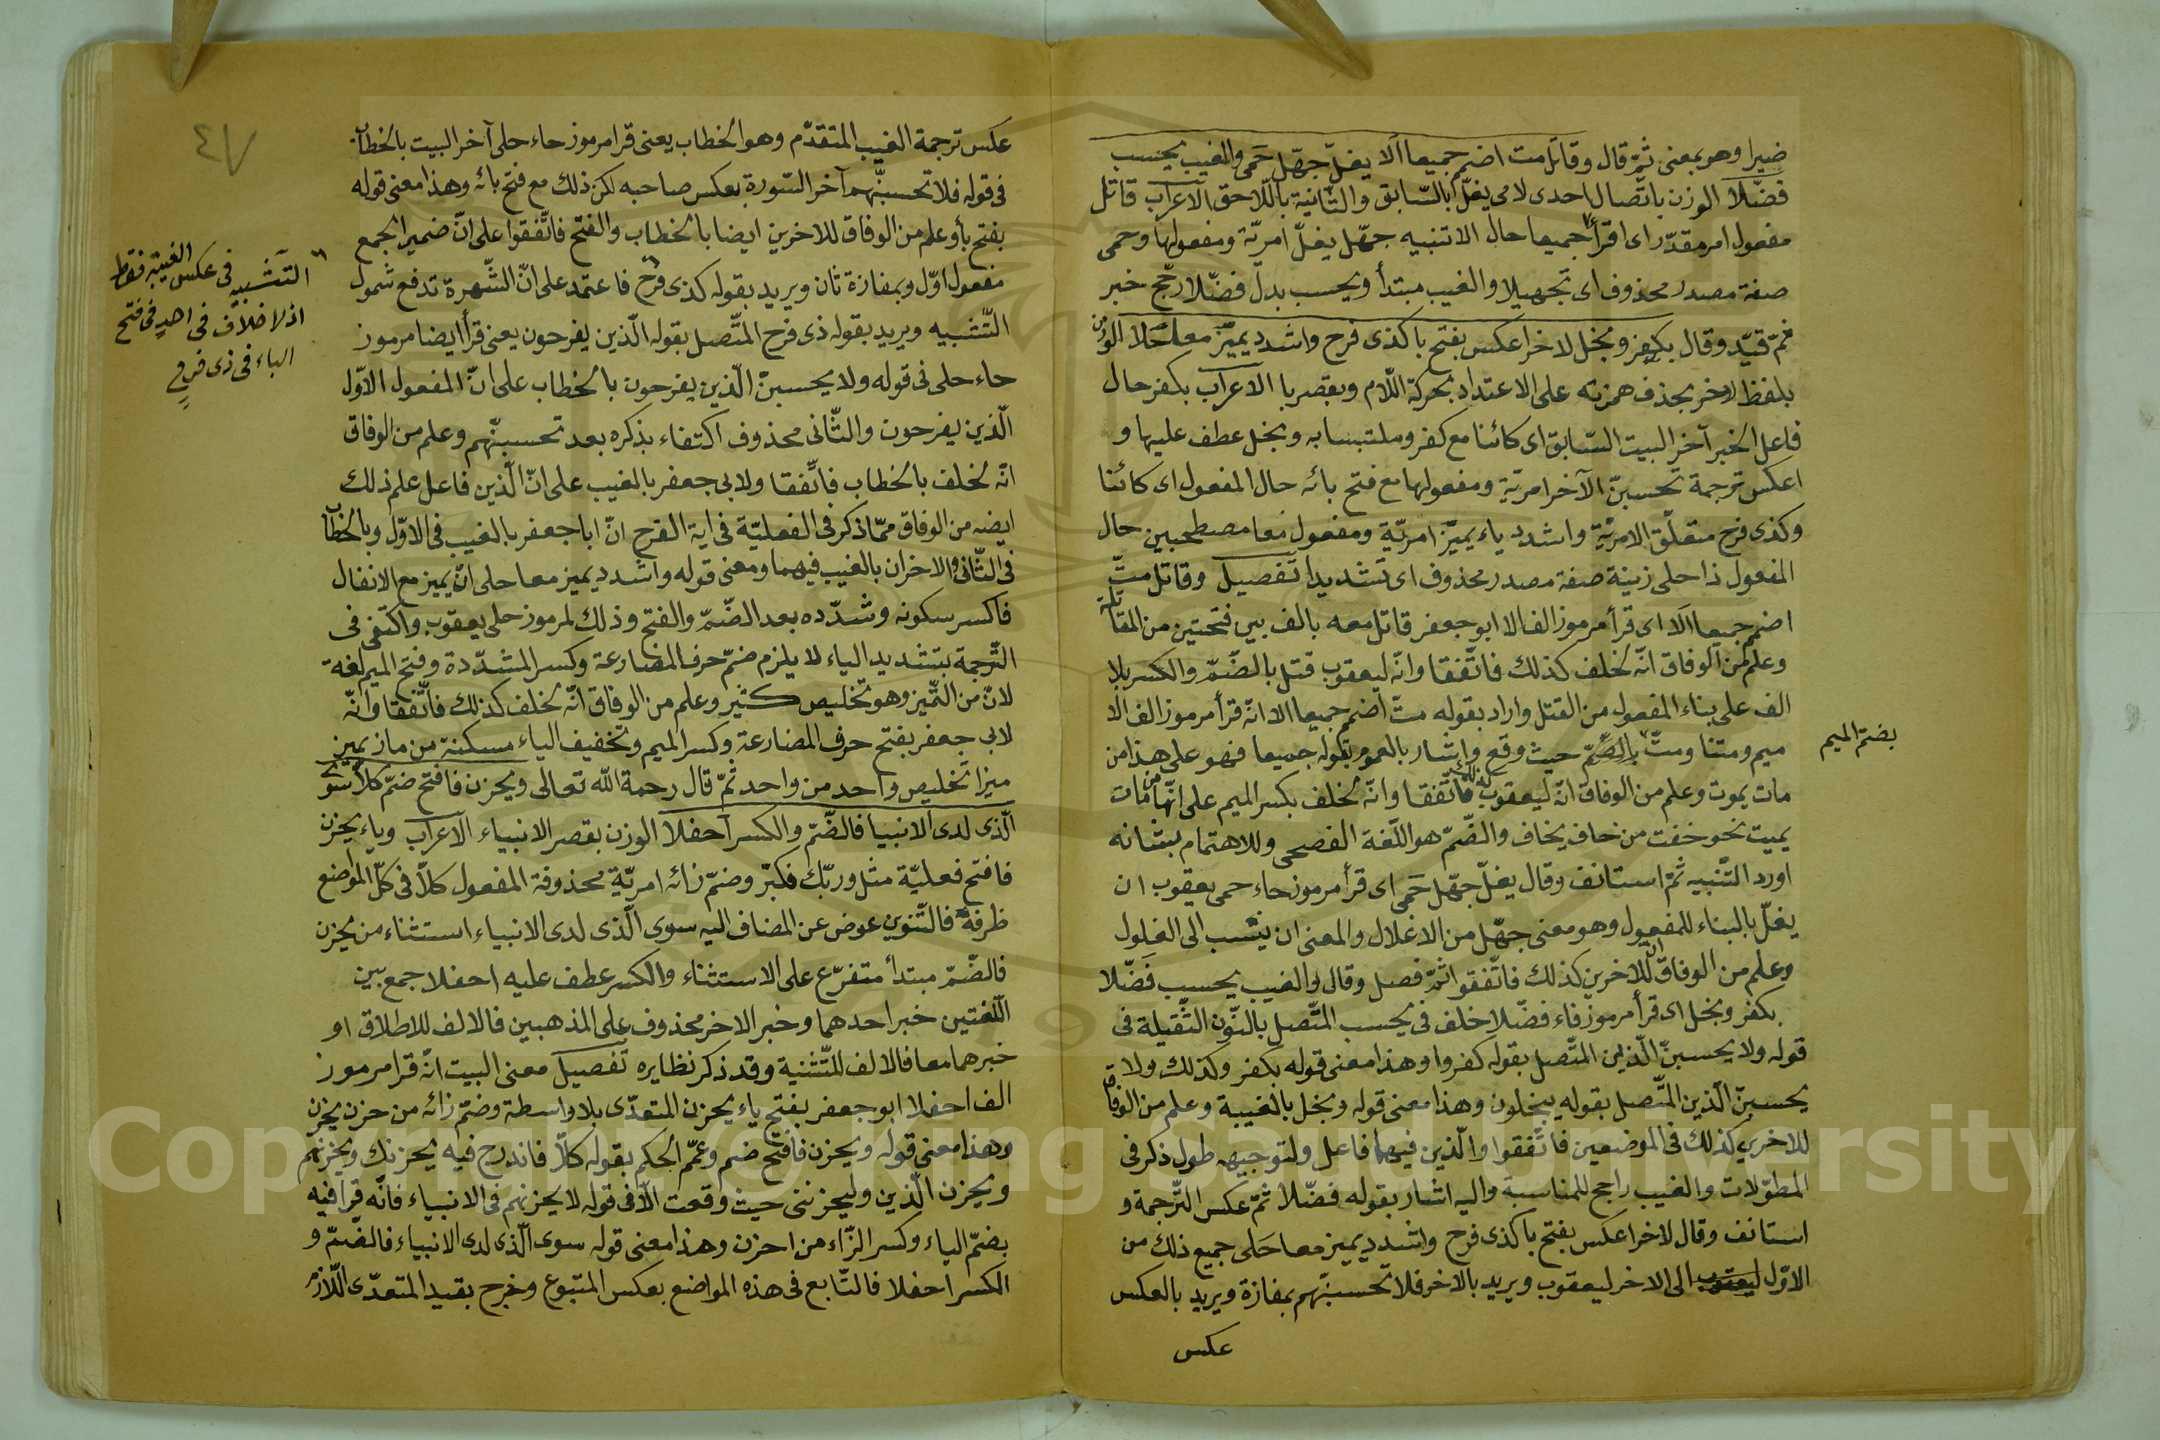 ضيرا وهو بمعنى ثمّ قال وقاتل مت اضمم جميعا ألا يغلّ جهّل حمى والغيب يحسب
فضّلا الوزن باتصال احدى لامى يغلّ بالسّابق والثّانية باللّاحق الاعراب قاتل
مفعول امر مقدّر اى اقرأ جميعا حال الا تنبيه جهّل يغلّ امريّة ومفعولها وحمى
صفة مصدر محذوف اى تجهيلا والغيب مبتدأ ويحسب بدل فضّلا رجّح خبر
ثمّ قيّد وقال بكفر وبخل لاخر اعكس بفتح با كذى فرح واشدد يميّز معا حلا الوزن
بلفظ لاخر بحذف همزته على الاعتداد بحركة اللّام وبقصر با الاعراب بكفر حال
فاعل الخبر آخر البيت السّابق اى كائنا مع كفر وملتبسا به وبخل عطف عليها و
اعكس ترجمة تحسبنّ الآخر امريّة ومفعولها مع فتح بائه حال المفعول اى كائنا
وكذى فرح متعلّق الامريّة واشدد ياء يميّز امريّة ومفعول معا مصطحبين حال
المفعول ذا حلى زينة صفة مصدر محذوف اى تشديدا تفصيل وقاتل متّ
اضمم جميعا الا اى قرأ مرموز الف الا ابو جعفر قاتل معه بالف بين فتحتين من المقاتلة
وعلم من الوفاق انّه لخلف كذلك فاتّفقا وانّه ليعقوب قتل بالضّمّ والكسر بلا
الف على بناء المفعول من القتل واراد بقوله متّ اضمم جميعا الا انّه قرأ مرموز الف الا
ميم ومتنا ومتّ بالضّمّ حيث وقع واشار بالعموم بقوله جميعا فهو على هذا من
بضمّ الميم
مات يموت وعلم من الوفاق انّه ليعقوب كذلك فاتّفقا وانّه لخلف بكسر الميم على انّها من مات
يميت نحو خفت من خاف يخاف والضّمّ هو اللّغة الفصحى وللاهتمام بشانه
اورد التّنبيه ثمّ استانف وقال يغلّ جهّل حَمى اى قرأ مرموز حاء حمى يعقوب ان
يغلّ بالبناء للمفعول وهو معنى جهّل من الاغلال والمعنى ان ينسب الى الغلول
وعلم من الوفاق انّ للاخرين كذلك فاتّفقوا ثمّ فصل وقال والغيب يحسب فَضّلا
بكفر وبخل اى قرأ مرموز فاء فضّلا خلف فى يحسب المتّصل بالنّون الثّقيلة فى
قوله ولا يحسبنّ الّذين المتّصل بقوله كفروا وهذا معنى قوله بكفر وكذلك ولا
يحسبنّ الّذين المتّصل بقوله يبخلون وهذا معنى قوله وبخل بالغيبة وعلم من الوفاق
للاخرين كذلك فى الموضعين فاتّفقوا والّذين فيهما فاعل ولتوجيهه طول ذكر فى
المطوّلات والغيب راجح للمناسبة واليه اشار بقوله فضّلا ثمّ عكس التّرجمة و
استانف وقال لاخر اعكس بفتح با كذى فرح واشدد يميز معا حَلى جميع ذلك من
الاوّل الى الاخر ليعقوب ويريد بالاخر فلا تحسبنّهم بمفازة ويريد بالعكس
عكس
٤٧
عكس ترجمة الغيب المتقدّم وهو الخطاب يعنى قرا مرموز حاء حلى آخر البيت بالخطاب
فى قوله فلا تحسبنّهم آخر السّورة بعكس صاحبه لكن ذلك مع فتح بائه وهذا معنى قوله
بفتح با وعلم من الوفاق للاخرين ايضا بالخطاب والفتح فاتّفقوا على انّ ضمير الجمع
مفعول اوّل وبمفازة ثان ويريد بقوله كذى فرح فاعتمد على انّ الشّهرة تدفع شمول
التّشبيه ويريد بقوله ذى فرح المتّصل بقوله الّذين يفرحون يعنى قرأ ايضا مرموز
التّشبيه فى عكس الغيبة فقط
اذ لا خلاف فى احد فى فتح
الباء فى ذى فرح
حاء حلى فى قوله ولا يحسبنّ الّذين يفرحون بالخطاب على انّ المفعول الاوّل
الّذين يفرحون والثّانى محذوف اكتفاء بذكره بعد تحسبنّهم وعلم من الوفاق
انّه لخلف بالخطاب فاتّفقا ولابى جعفر بالغيب على انّ الّذين فاعل علم ذلك
ايضه من الوفاق ممّا ذكر فى الفعليّة فى اية الفرح انّ ابا جعفر بالغيب فى الاوّل وبالخطاب
فى الثّانى والاخران بالغيب فيهما ومعنى قوله واشدد يميز معا حلى انّ يميز مع الانفال
فاكسر سكونه وشدّده بعد الضّمّ والفتح وذلك لمرموز حلى يعقوب واكتفى فى
التّرجمة بتشديد الياء لا يلزم ضمّ حرف المضارعة وكسر المشدّدة وفتح الميم لغة
لانّ من التّميز وهو تخليص كثير وعلم من الوفاق انّه لخلف كذلك فاتّفقا وانّه
لابى جعفر بفتح حرف المضارعة وكسر الميم وتخفيف الياء مسكنة من ماز يميز
ميزا تخليص واحد من واحد ثمّ قال رحمة اللّه تعالى ويحزن فافتح ضمّ كلاّ سوى
الّذى لدى الانبيا فالضّمّ والكسر احفلا الوزن بقصر الانبياء الاعراب وياء يحزن
فافتح فعليّة مثل وربّك فكبّر وضمّ زائه امريّة محذوفة المفعول كلاّ فى كلّ المواضع
ظرفه فالتّنوين عوض عن المضاف اليه سوى الّذى لدى الانبياء استثناء من يحزن
فالضّمّ مبتدأ متفرّع على الاستثناء والكسر عطف عليه احفلا جمع بين
اللّغتين خبر احدهما وخبر الاخر محذوف على المذهبين فالالف للاطلاق او
خبرهما معا فالالف للتّثنية وقد ذكر نظايره تفصيل معنى البيت انّه قرا مرموز
الف احفلا ابو جعفر بفتح ياء يحزن المتعدّى بلا واسطة وضمّ زائه من حزن يحزن
وهذا معنى قوله ويحزن فافتح ضم وعمّم الحكم بقوله كلاّ فاندرج فيه يحزنك ويحزنهم
ويحزن الّذين وليحزننى حيث وقعت الاّ فى قوله لا يحزنهم فى الانبياء فانّه قرأ فيه
بضمّ الياء وكسر الزّاء من احزن وهذا معنى قوله سوى الّذى لدى الانبياء فالضمّ و
الكسر احفلا فالتّابع فى هذه المواضع بعكس المتبوع وخرج بقيد المتعدّى اللّازم
Copyright © King Saud University